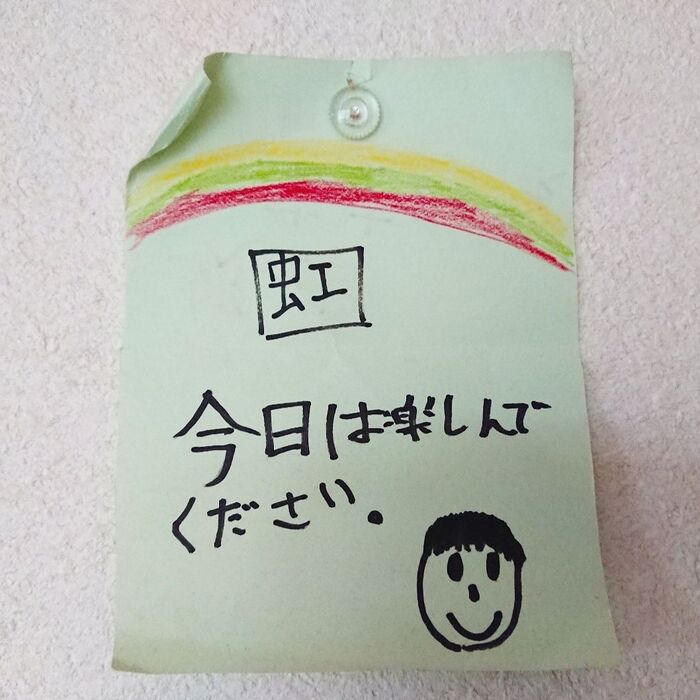 虹
今日は楽しんで
ください。